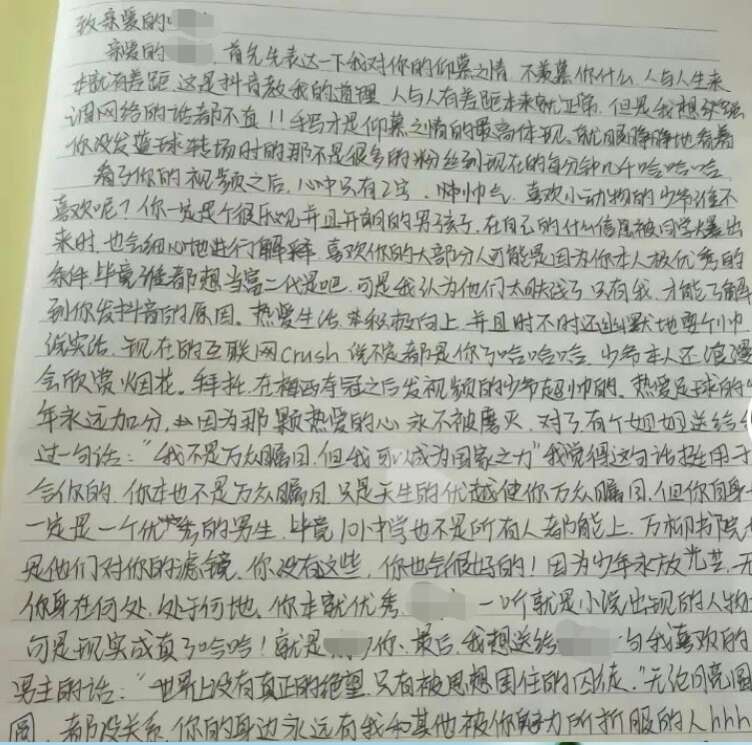 致亲爱的:
亲爱的 ,首先先表达一下我对你的仰慕之情,不羡慕你什么,人与人生来
本就有差距,这是抖音教我的道理,人与人有差距本来就正常,但是我想
网络的话都不真!!手写才是仰慕之情的最高体现。就眼睁睁地看着
你没发篮球转场时的那不是很多的粉丝到现在的每分钟几千哈哈哈,
看了你的视频之后,心中只有2字,帅帅气,喜欢小动物的少年谁不
喜欢呢?你一定是个很乐观并且开朗的男孩子,在自己的什么信息被同学爆出
来时,也会细心地进行解释,喜欢你的大部分人可能是因为你本人极优秀的
条件,毕竟谁都想当富二代是吧,可是我认为他们太肤浅了,只有我,才能了解
到你发抖音的原因。热爱生活,积极向上,并且时不时还幽默地耍个小巾
说实话,现在的互联网crush说不定都是你了哈哈哈,少爷本人还浪漫
会欣赏烟花。拜托,在梅西夺冠之后发视频的少爷超帅的。热爱足球的少
年永远加分,因为那颗热爱的心永不被磨灭,对了有个姐姐送给
过一句话:“我不是万众瞩目,但我可以成为国家之力”我觉得这句话挺适用于
合你的,你本也不是万众瞩目,只是天生的优越使你万众瞩目,但你自身
一定是一个优秀的男生,毕竟101中学也不是所有人都能上,万柳书院
是他们对你的滤镜,你没有这些,你也会很好的!因为少年永放光芒,无
你身在何处,处于何地,你本就优秀, 一听就是小说出现的人物
可是现实成真了哈哈!就是 你、最后,我想送给 句我喜欢的
男主的话:“世界上没有真正的绝望,只有被思想困住的囚徒。”无论月亮圆
圆,都没关系,你的身边永远有我和其他被你魅力所折服的人hhh